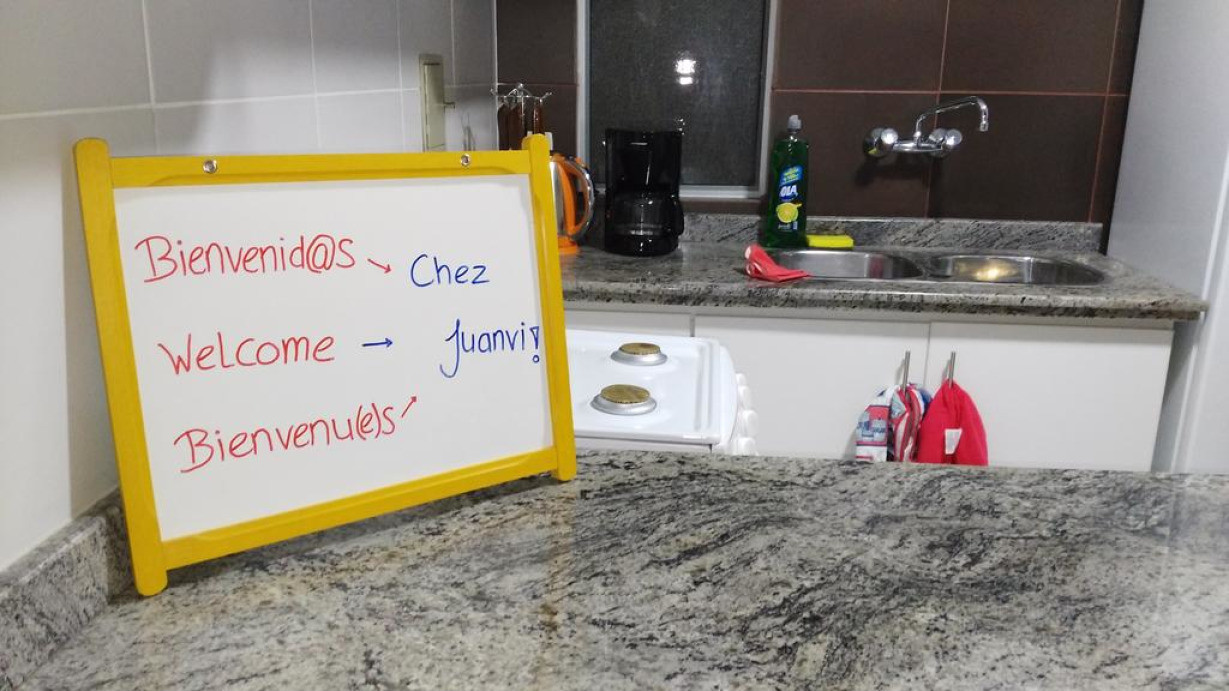 Bienvenid@s → Chez
Welcome → Juanvi!
Bienvenu(e)s ↗
OLA